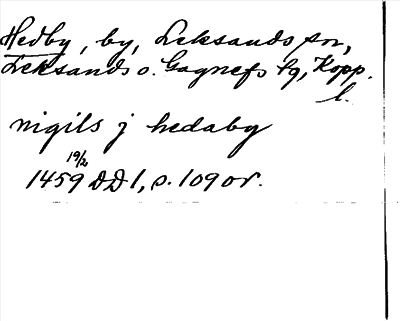 Hedby, by, Leksands sn,
Leksands o. Gagnefs tg, Kopp.
l.
nigils j hedaby
19/2
1459 DD 1, s. 109 or.